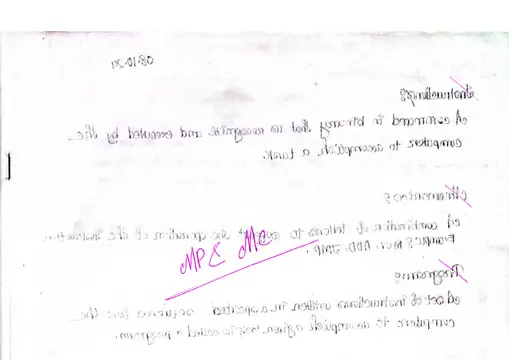 08-10-24
Instructions
A command in binary that is recognise and executed by the
computer to accomplish a task.
Mnemonics
A combination of letters to the operation of the instruction
Example: MOV, ADD, JMP.
MP & MC
Program
A set of instructions written in a specified sequence for the
computer to accomplish a given task is called a program.